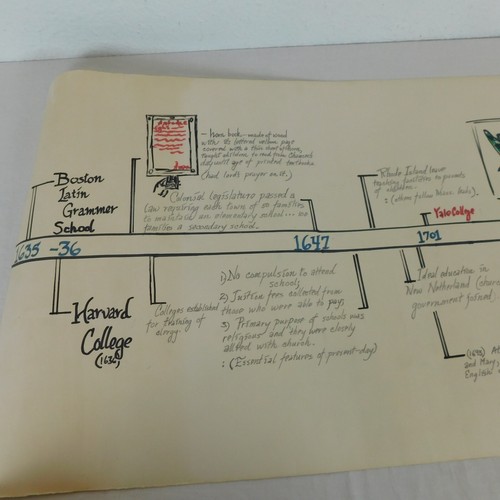 Boston
Latin
Grammer
School
- horn book - made of wood
with its lettered vellum page
covered with a thin sheet of horn,
taught children to read from
until age of printed textbooks
(had lord's prayer on it.)
Colonial legislature passed a
law requiring each town of 50 families
to maintain an elementary school... 100
families a secondary school.
Rhode Island leave
teaching function to parents
of children.
: (others follow Mass. lead)
Yale College
1635 -36
1647
1701
Harvard
College
(1636)
Colleges established
for training of
clergy
1) No compulsion to attend
schools;
2) Tuition fees collected from
those who were able to pay;
3) Primary purpose of schools was
religious and they were closely
allied with church.
: (Essential features of present-day)
Ideal education in
New Netherland (church
government joined)
(1693)
and Mary,
English